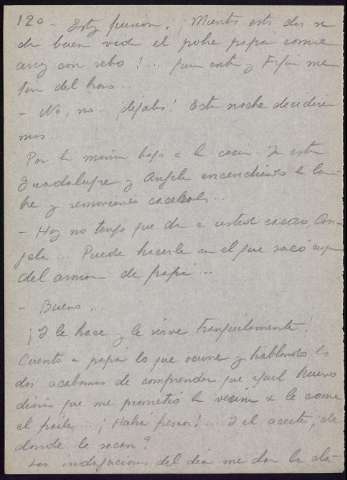 120 - Estoy furiosa. ¡Mientras estas dos se
dan buena vida el pobre papá come
arroz con sebo!...
- No, no ¡déjalas! Esta noche decidire-
mos.
Por la mañana bajo a la cocina. Ya están
Guadalupe y Angela encendiendo la lum-
bre y removiendo cacharros...
- Hoy no tengo que dar a usted cacao, An-
gela... Puede hacerle en el que sacó ayer
del armario de papá...
- Bueno.
¡Y le hace y le sirve tranquilamente!
Cuento a papá lo que ocurre y hablando los
dos acabamos de comprender que aquel huevo
diario que me prometió la vecina se le come
el padre... ¡Habrá perra!... Y el aceite, ¿de
donde le sacan?
Las indignaciones del día me dan la cla-